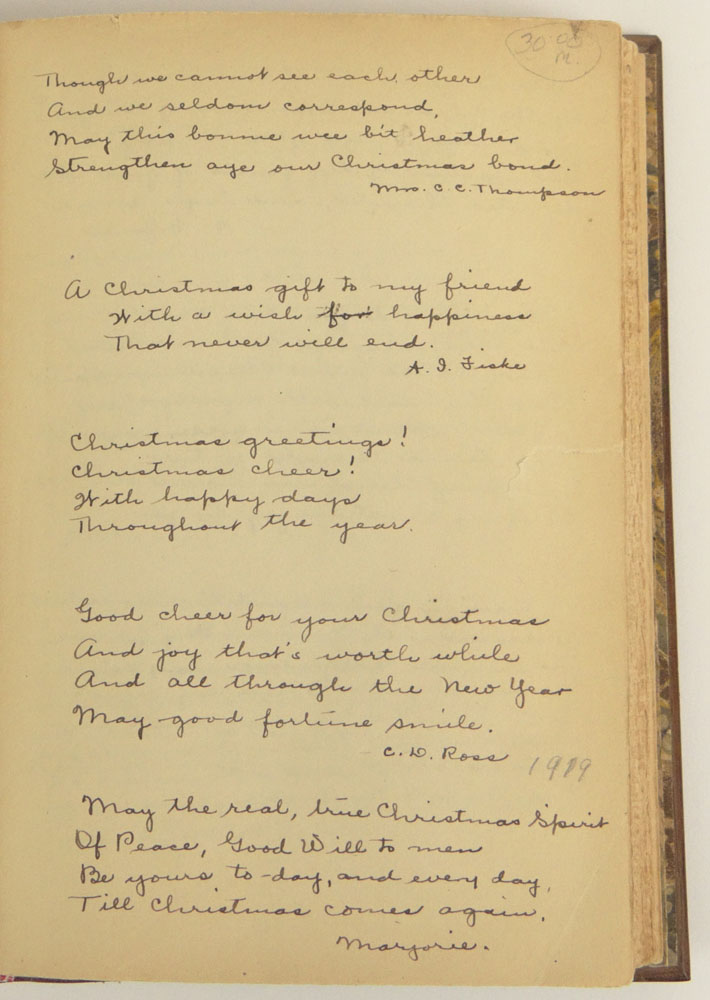 30.05
M.
Though we cannot see each other
And we seldom correspond,
May this bonnie wee bit heather
Strengthen aye our Christmas bond.
Mrs. C. C. Thompson
A Christmas gift to my friend
With a wish for happiness
That never will end.
A. I. Fiske
Christmas greetings!
Christmas cheer!
With happy days
Throughout the year.
Good cheer for your Christmas
And joy that's worth while
And all through the New Year
May good fortune smile.
C. D. Ross
1919
May the real, true Christmas Spirit
Of Peace, Good Will to men
Be yours to-day, and every day,
Till Christmas comes again.
Marjorie.